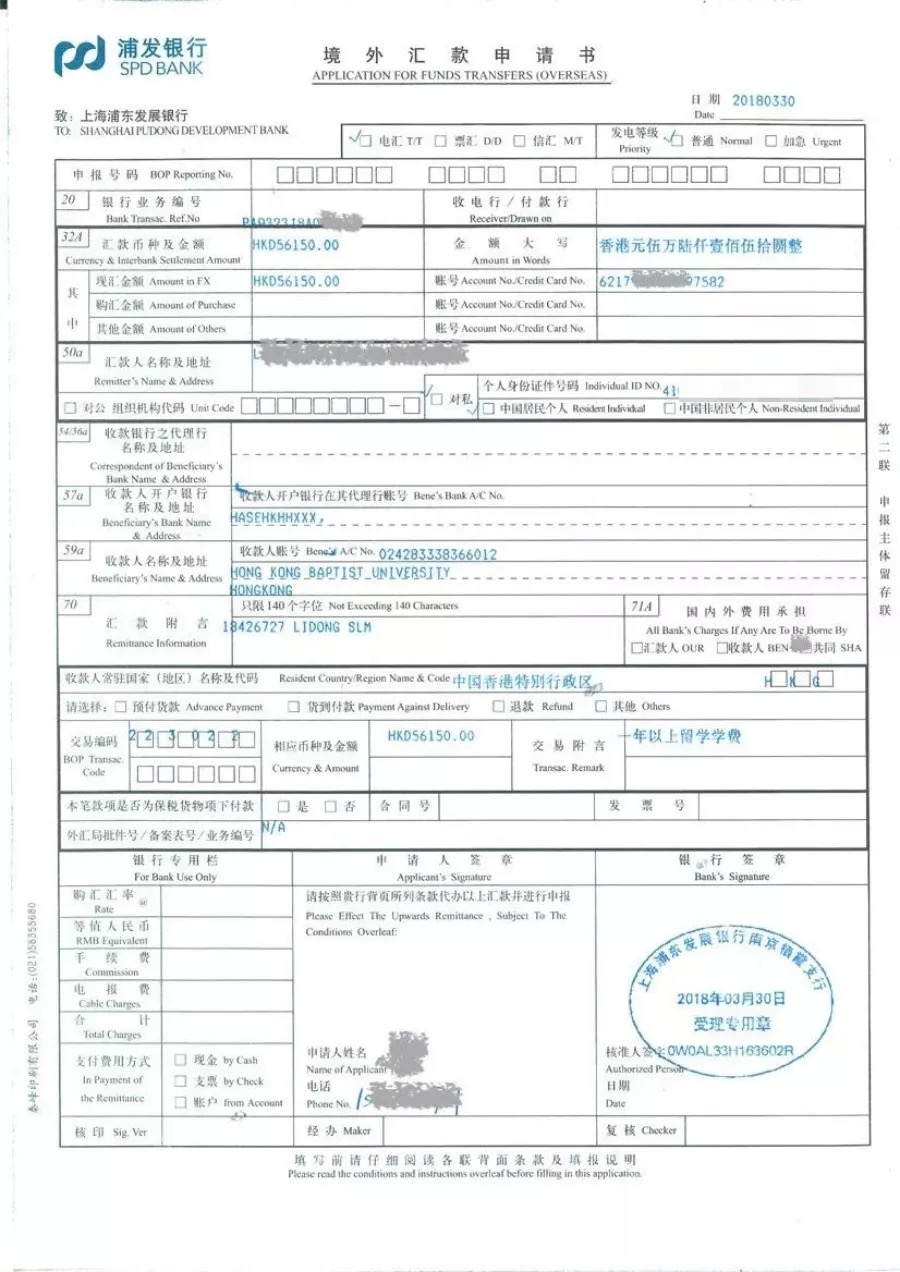 浦发银行
SPD BANK
境外汇款申请书
APPLICATION FOR FUNDS TRANSFERS (OVERSEAS)
日期 20180330
Date
致：上海浦东发展银行
TO: SHANGHAI PUDONG DEVELOPMENT BANK
电汇 T/T 票汇 D/D 信汇 M/T
发电等级 普通 Normal 加急 Urgent
Priority
申报号码 BOP Reporting No.
20 银行业务编号 收电行/付款行
Bank Transac. Ref.No Receiver/Drawn on
32A 汇款币种及金额 HKD56150.00 金额大写 香港元伍万陆仟壹佰伍拾圆整
Currency & Interbank Settlement Amount Amount in Words
其中
现汇金额 Amount in FX HKD56150.00 账号 Account No./Credit Card No. 6217 97582
购汇金额 Amount of Purchase 账号 Account No./Credit Card No.
其他金额 Amount of Others 账号 Account No./Credit Card No.
50a 汇款人名称及地址
Remitter's Name & Address
对公 组织机构代码 Unit Code
对私 个人身份证件号码 Individual ID NO. 41
中国居民个人 Resident Individual 中国非居民个人 Non-Resident Individual
54/56a 收款银行之代理行
名称及地址
Correspondent of Beneficiary's
Bank Name & Address
57a 收款人开户银行 收款人开户银行在其代理行账号 Bene's Bank A/C No.
名称及地址
Beneficiary's Bank Name HASEHKHHXXX,
& Address
59a 收款人名称及地址 收款人账号 Bene's A/C No. 024283338366012
Beneficiary's Name & Address HONG KONG BAPTIST UNIVERSITY
HONGKONG
70 汇款附言 只限140个字位 Not Exceeding 140 Characters
Remittance Information 18426727 LIDONG SLM
71A 国内外费用承担
All Bank's Charges If Any Are To Be Borne By
汇款人 OUR 收款人 BEN 共同 SHA
收款人常驻国家（地区）名称及代码 Resident Country/Region Name & Code 中国香港特别行政区 HKG
请选择： 预付货款 Advance Payment 货到付款 Payment Against Delivery 退款 Refund 其他 Others
交易编码 223022 相应币种及金额 HKD56150.00 交易附言 一年以上留学学费
BOP Transac. Code Currency & Amount Transac. Remark
本笔款项是否为保税货物项下付款 是 否 合同号 发票号
外汇局批件号/备案表号/业务编号 N/A
银行专用栏 申请人签章 银行签章
For Bank Use Only Applicant's Signature Bank's Signature
购汇汇率 @
Rate
等值人民币
RMB Equivalent
手续费
Commission
电报费
Cable Charges
合计
Total Charges
支付费用方式 现金 by Cash
In Payment of 支票 by Check
the Remittance 账户 from Account
核印 Sig. Ver
请按照贵行背页所列条款代办以上汇款并进行申报
Please Effect The Upwards Remittance , Subject To The
Conditions Overleaf:
申请人姓名
Name of Applicant
电话
Phone No.
经办 Maker
2018年03月30日
受理专用章
核准人签字 0W0AL33H163602R
Authorized Person
日期
Date
复核 Checker
填写前请仔细阅读各联背面条款及填报说明
Please read the conditions and instructions overleaf before filling in this application.
第二联 申报主体留存联
电话:(021)58355680